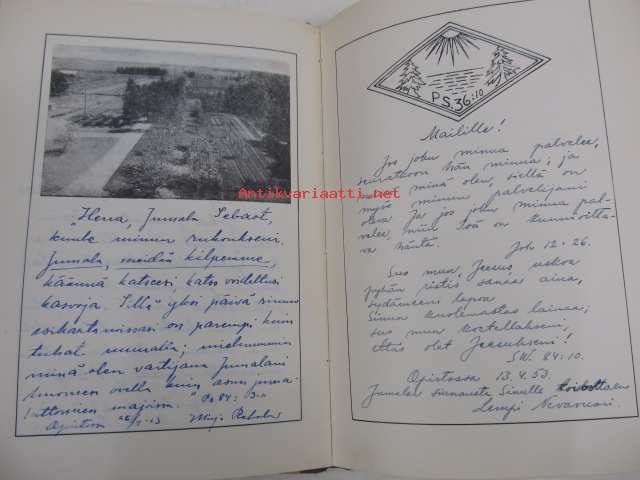 "Herra, Jumala Sebaot,
kuule minun rukoukseni.
Jumala, meidän kilpemme,
käännä katseesi, katso voideltusi
kasvoja. Sillä yksi päivä sinun
esikartanoissasi on parempi kuin
tuhat muualla; mieluummin
minä olen vartijana Jumalani
huoneen ovella kuin asun jumalattomien majoissa."
Ps 84:
Opistossa
Antikvariaatti.net
PS. 36:10
Mailille!
Jos joku minua palvelee,
seuratkoon hän minua; ja
missä minä olen, siellä on
myös minun palvelijani
oleva. Ja jos joku minua pal-
velee, niin Isä on kunnioitta-
va häntä.
Joh 12:26.
Suo mun, Jeesus, uskoa
pyhän ristis sanaa aina,
sydämeeni lepoa
Sinun kuolemastas lainaa;
suo mun koetellakseni,
että olet Jeesukseni!
SK. 84:10.
Opistossa 13.4.53.
Jumalan siunausta Sinulle toivottaen
Lempi Nevavuori.